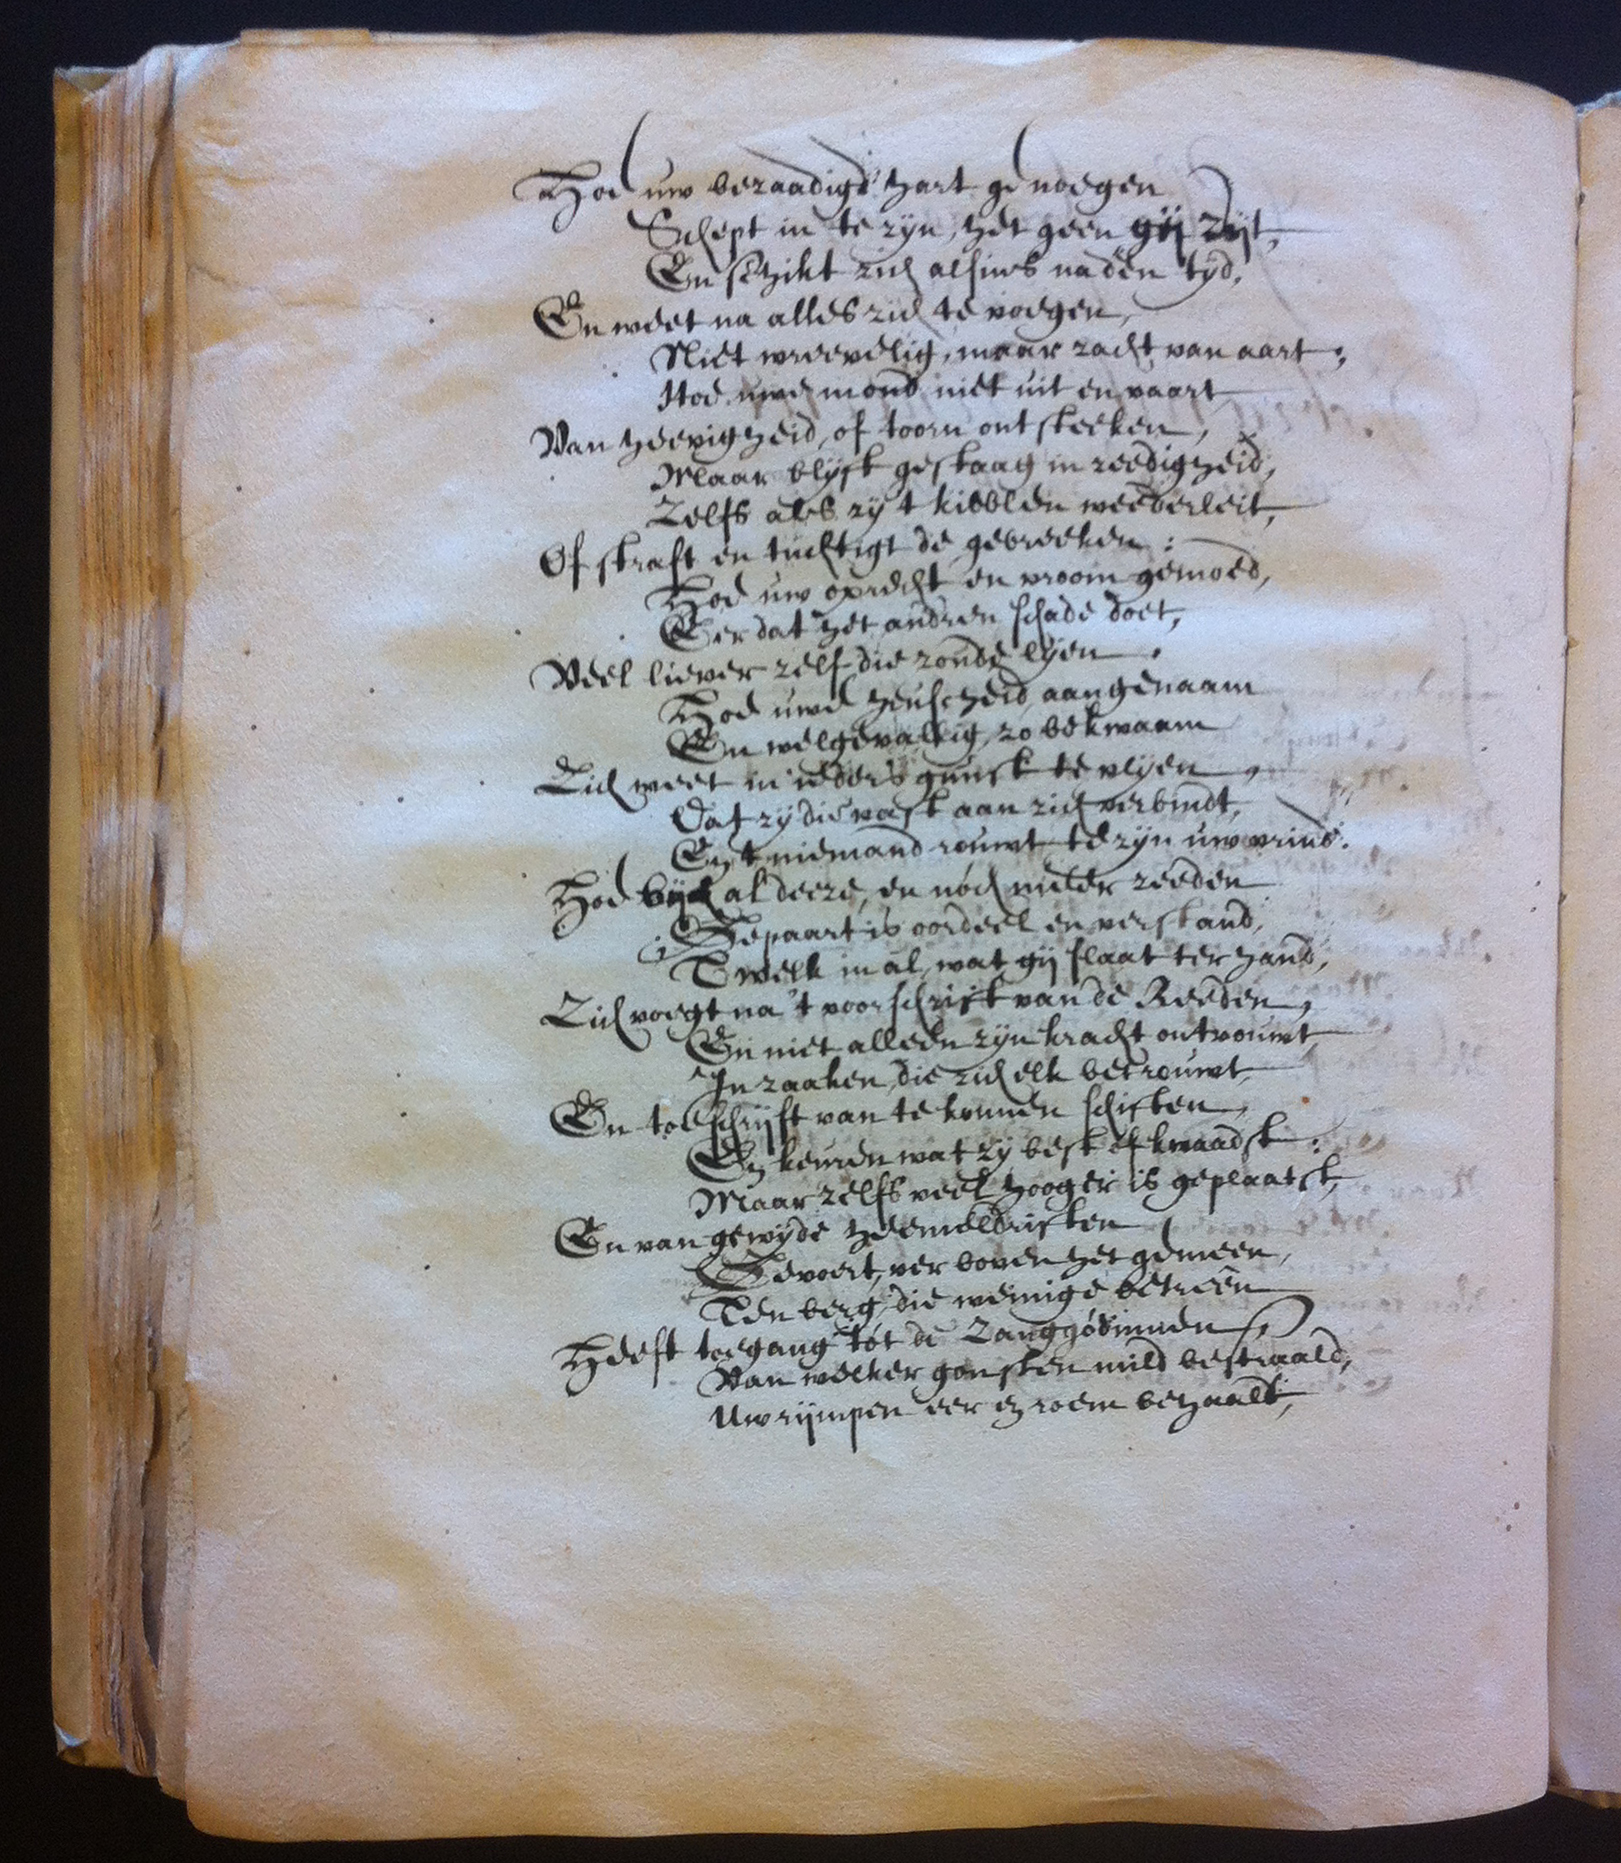 Hoe uw bezaadigd hart genoegen
Schept in te zyn, het geen gij zijt,
En schikt zich alsins na den tyd,
En weet na alles zich te voegen,
Niet wreevelig, maar zacht van aart;
Hoe uwe mond niet uit en vaart
Van heevigheid, of toorn ontsteeken,
Maar blijft gestaag in zeedigheid,
Zelfs als zy 't kibblen weederleit,
Of straft en tuchtigt de gebreeken:
Hoe uw oprecht en vroom gemoed,
Eer dat het andren schade doet,
Veel liever zelf die zoude lyen.
Hoe uwe heusheid aangenaam
En welgevallig, zo bekwaam
Zich weet in ieders gunst te vlyen,
Dat zy die vast aan zich verbindt,
En 't niemand rouwt te zyn uw vrind.
Hoe bij al deeze, en noch meer zeeden
Gepaart is oordeel en verstand,
'Twelk in al, wat gij slaat ter hand,
Zich voegt na 't voorschrift van de Reeden,
En niet alleen zyn kracht ontvouwt
In zaaken, die zich elk betrouwt,
En toeschrijft van te konnen schiften,
En keuren wat zy best of kwaadst:
Maar zelfs veel hooger is geplaatst,
En van gewyde heemeldriften
Gevoert, ver boven het gemeen,
Ten berg, die weinige betreên
Heeft toegang tót de Zanggódinnen,
Van welker gonsten mild bestraald,
Uw rijmpen eer en roem behaalt,